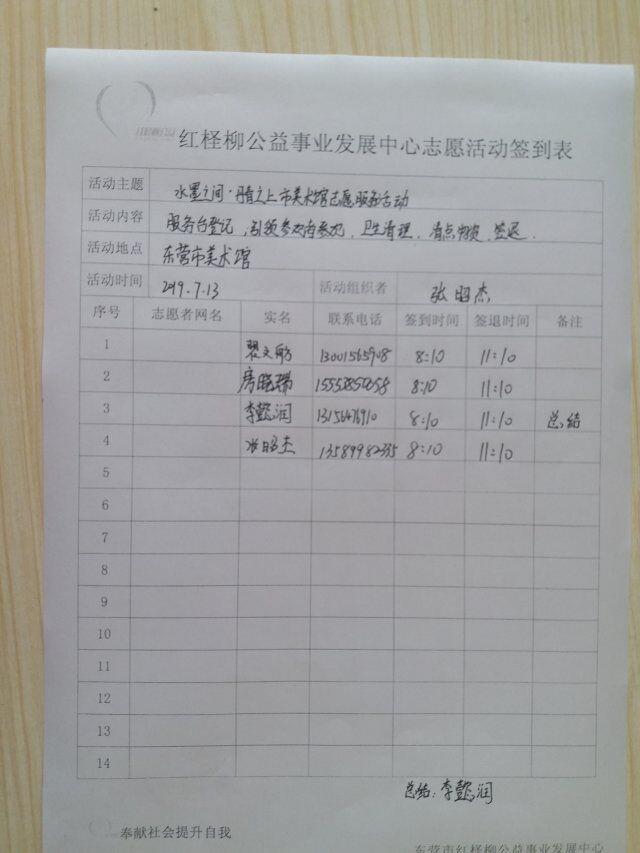 红柽柳公益事业发展中心志愿活动签到表
活动主题 水墨之间·丹青之上市美术馆志愿服务活动
活动内容 服务台登记，引领参观者参观，卫生清理，清点物资，签退.
活动地点 东营市美术馆
活动时间 2019.7.13 活动组织者 张昭杰
序号 志愿者网名 实名 联系电话 签到时间 签退时间 备注
1 翟文舫 13001565908 8:10 11:10
2 房晓瑞 8:10 11:10
3 李懿润 8:10 11:10 总结
4 张昭杰 13589982335 8:10 11:10
5
6
7
8
9
10
11
12
13
14
总结：李懿润
奉献社会提升自我
东营市红柽柳公益事业发展中心